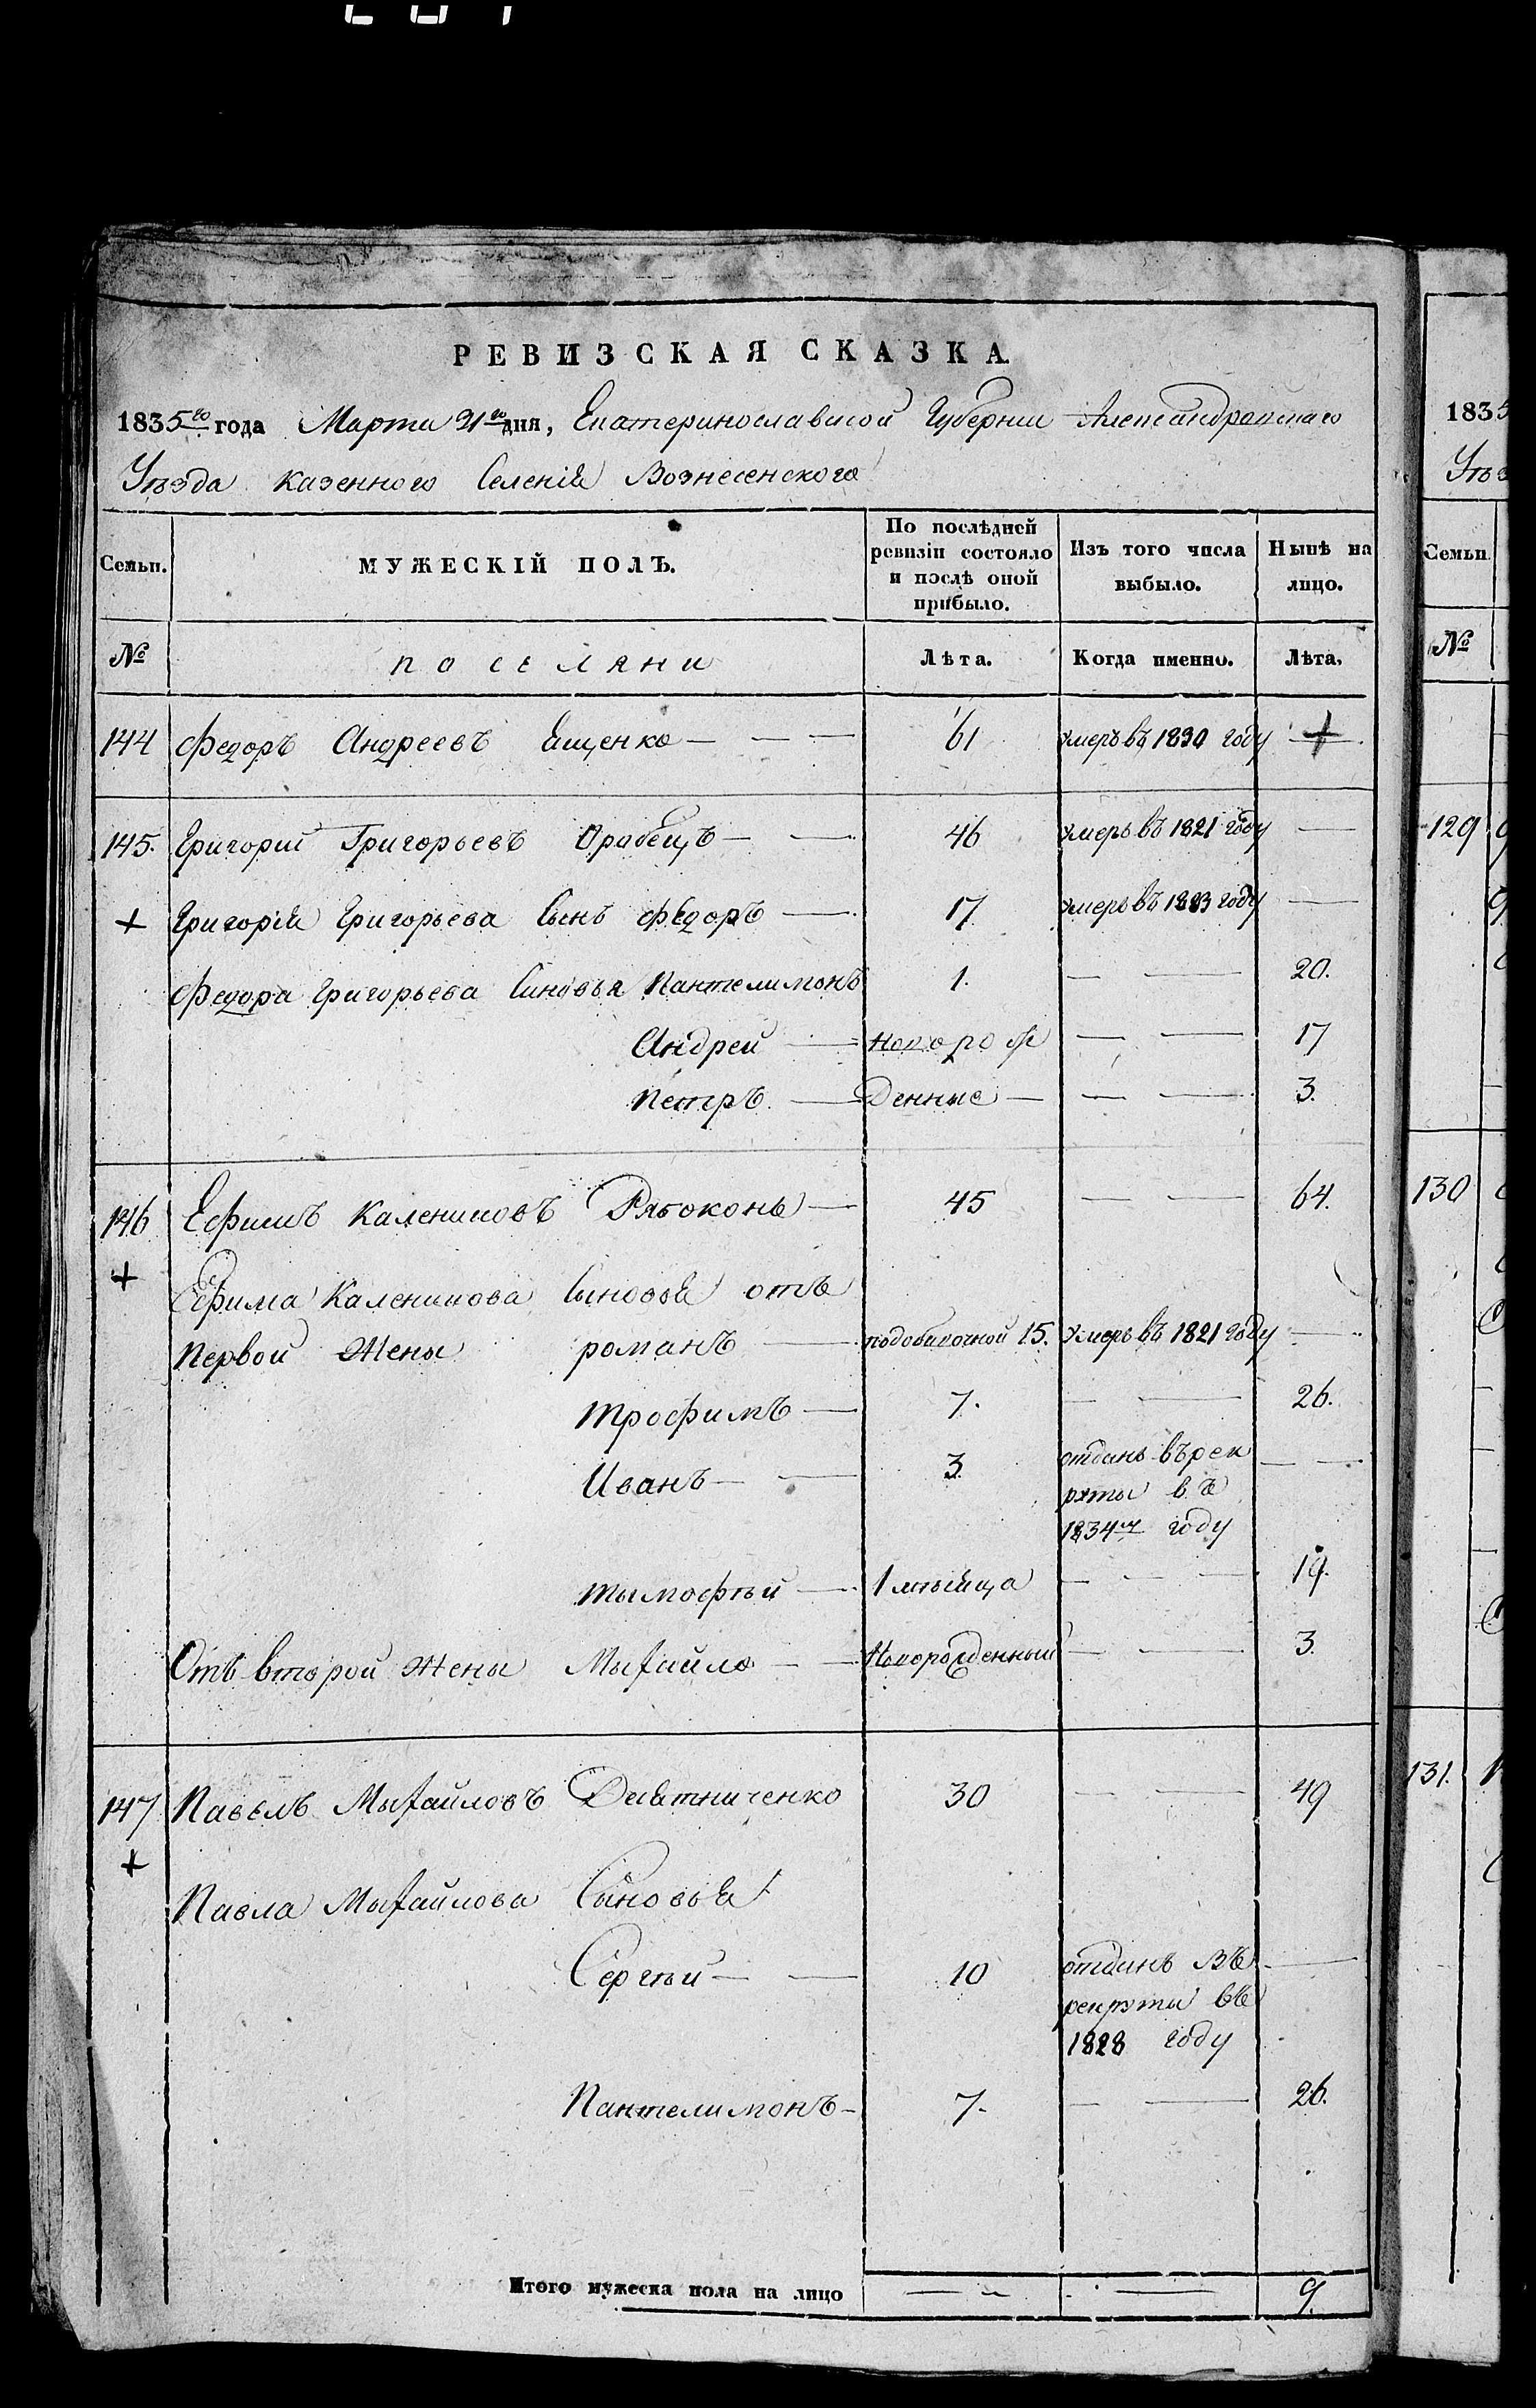 РЕВИЗСКАЯ СКАЗКА.
1835го года Марта 21го дня, Екатеринославской Губернии Александровскаго
Уѣзда казенного Селенія Вознесенского
Семьи. МУЖЕСКІЙ ПОЛЪ. По послѣдней ревизіи состояло и послѣ оной прибыло. Изъ того числа выбыло. Нынѣ на лицо.
№ поселяни Лѣта. Когда именно. Лѣта.
144 Федоръ Андреевъ Ещенко — — — 61 умеръ въ 1830 году +
145. Григорий Григорьевъ — — 46 умеръ въ 1821 году —
+ Григорія Григорьева Сынъ Федоръ — 17 умеръ въ 1823 году —
Федора Григорьева Синовья Пантелимонъ 1. — — 20.
Андрей — новорож — — 17
Петръ — денные — — — 3.
146 Ефимъ Калениковъ Рябоконь — 45 — — 64.
+
Ефима Каленикова Сыновья отъ
первой Жены романъ — 15. умеръ въ 1821 году —
трофимъ — 7. — — 26.
Иванъ — — 3. отданъ въ рек — —
руты въ
1834м году
тымофѣй — 1 мѣсяца — — — 19.
Отъ второй Жены Мыхайло — — Новорожденный — — 3.
147 Павелъ Мыхайловъ Девятниченко 30 — — 49
+
Павла Мыхайлова Сыновья
Сергѣй — — 10 отданъ въ —
рекруты въ
1828 году
Пантелимонъ — 7. — — 26.
Итого мужеска пола на лицо — — — 9.
1835
Уѣз
Семьи.
№
129
130
131.